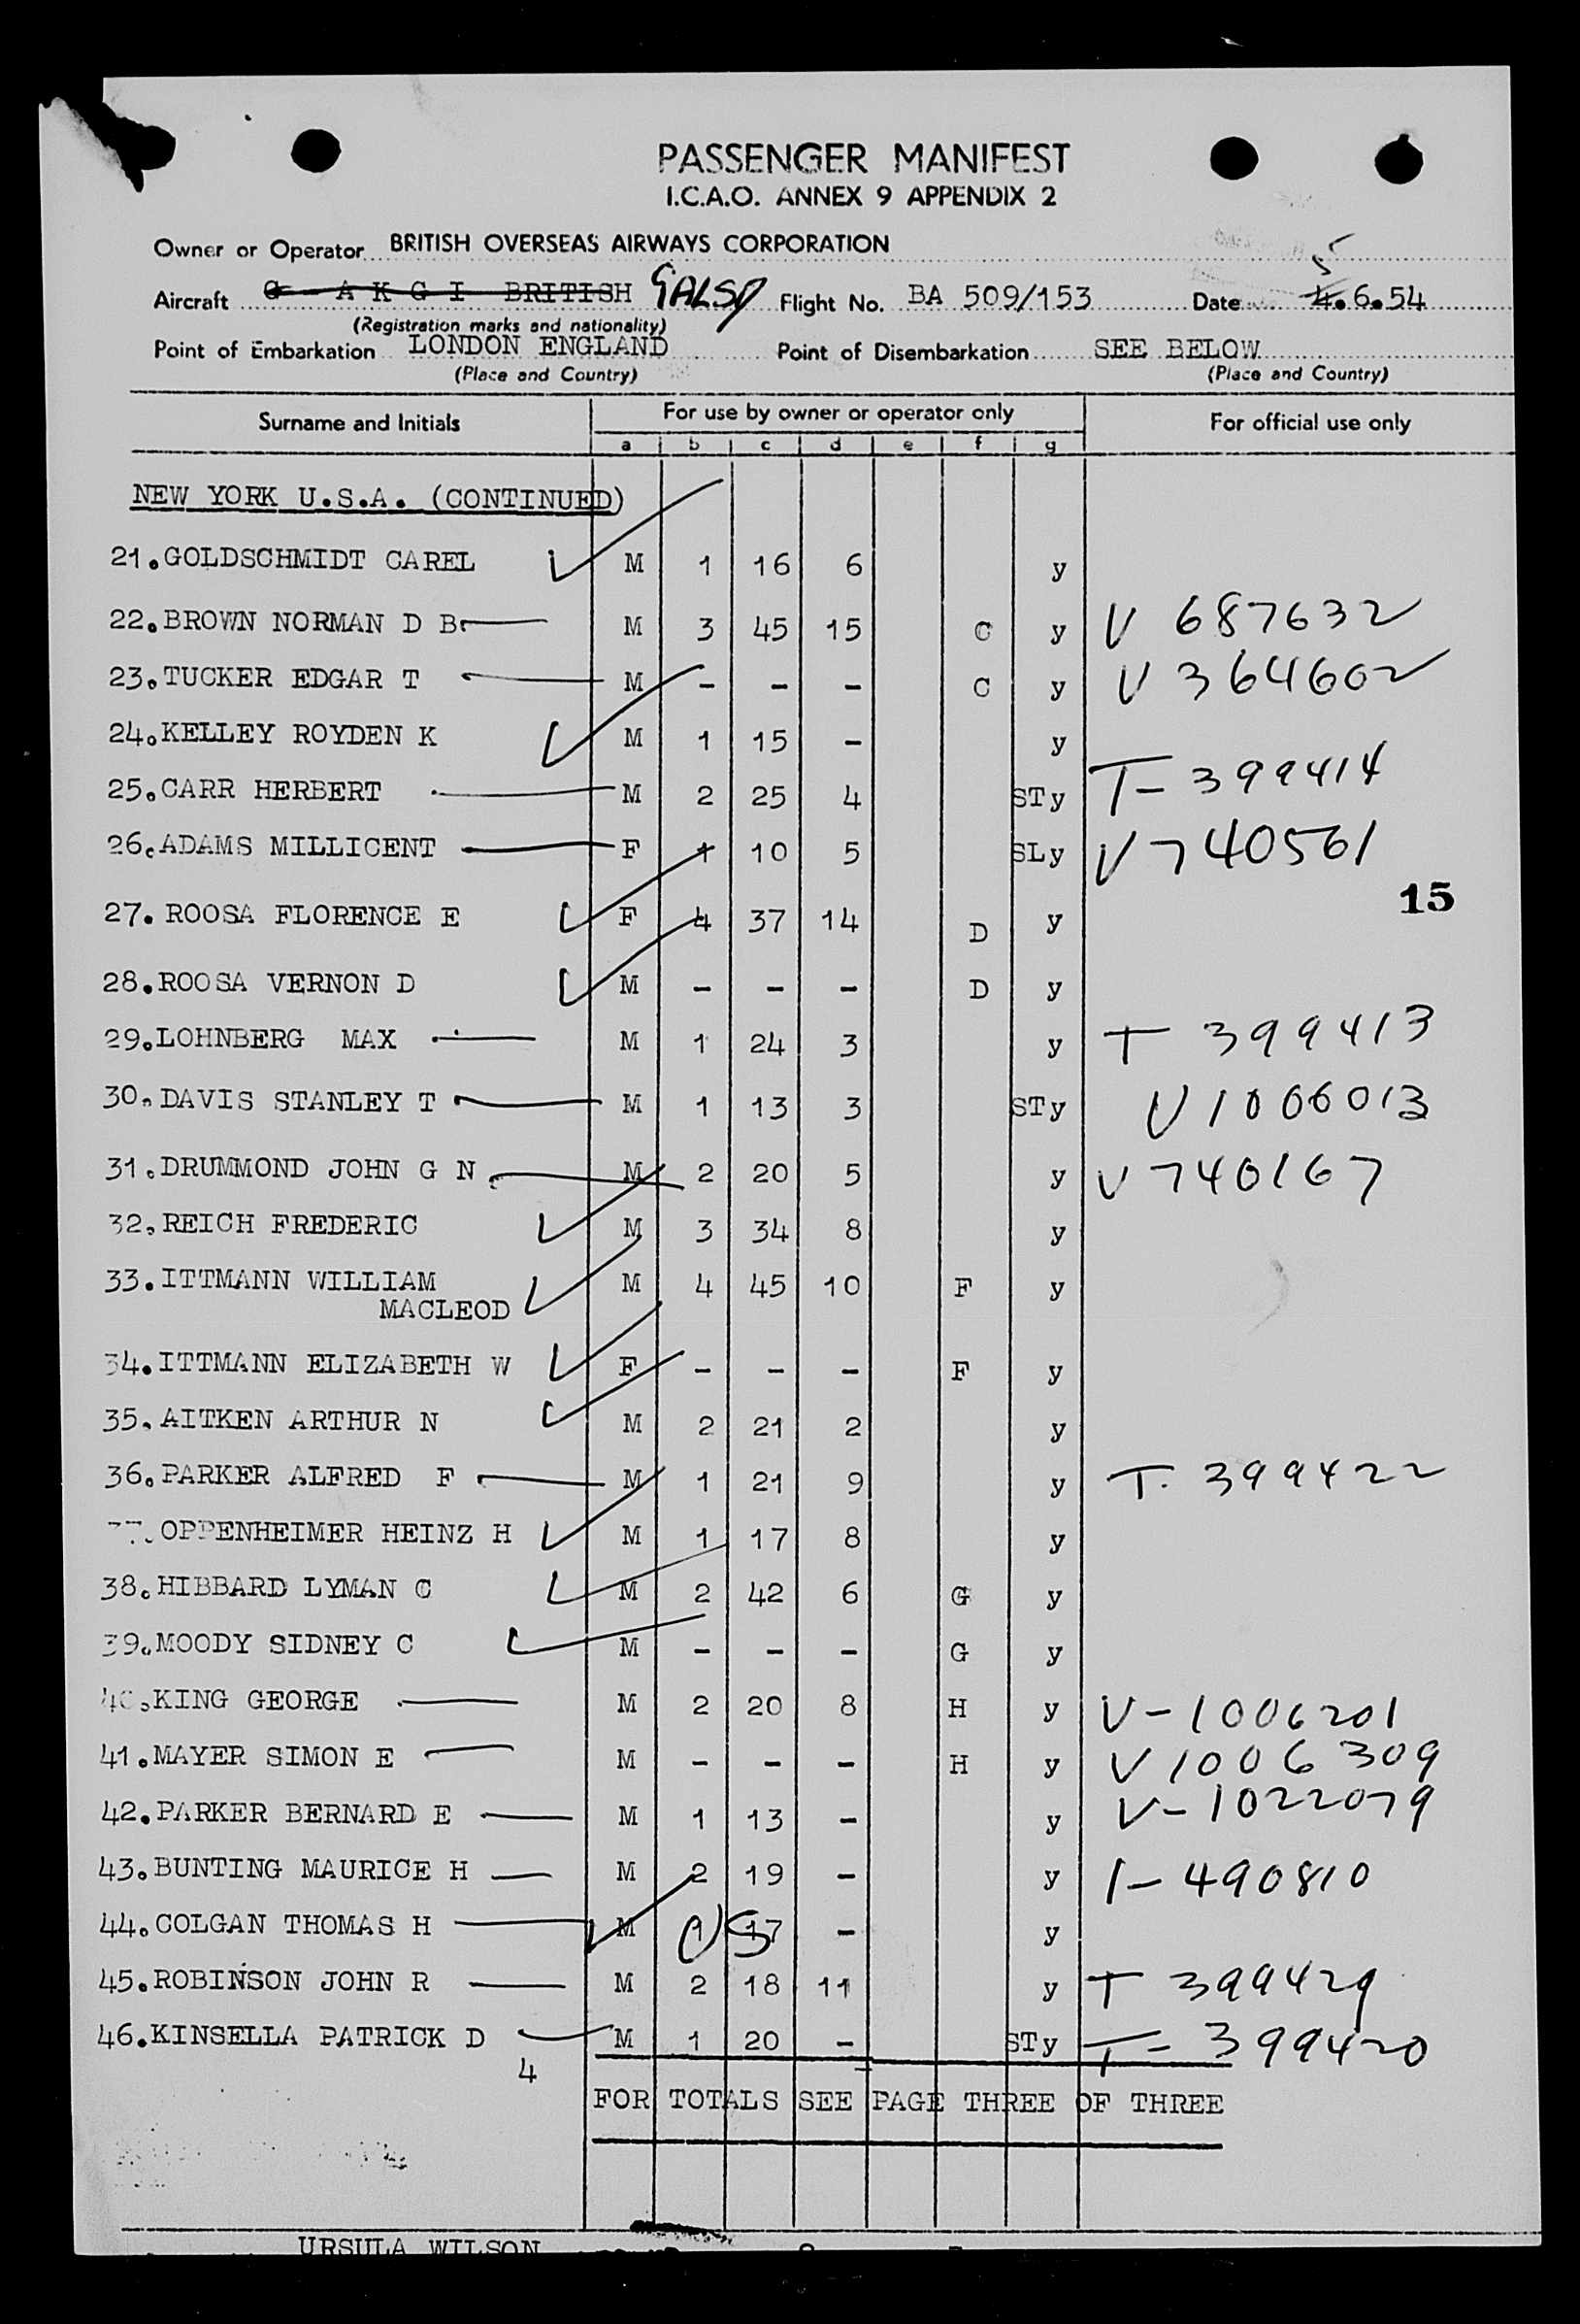 PASSENGER MANIFEST
I.C.A.O. ANNEX 9 APPENDIX 2
Owner or Operator BRITISH OVERSEAS AIRWAYS CORPORATION
5
Aircraft G - A K G I BRITISH GALSD Flight No. BA 509/153 Date 4.6.54
(Registration marks and nationality)
Point of Embarkation LONDON ENGLAND Point of Disembarkation SEE BELOW
(Place and Country) (Place and Country)
Surname and Initials For use by owner or operator only For official use only
a b c d e f g
NEW YORK U.S.A. (CONTINUED)
21.GOLDSCHMIDT CAREL M 1 16 6 y
22.BROWN NORMAN D B. M 3 45 15 C y V 687632
23.TUCKER EDGAR T M - - - C y V 364602
24.KELLEY ROYDEN K M 1 15 - y
25.CARR HERBERT M 2 25 4 STy T- 399414
26.ADAMS MILLICENT F 1 10 5 SLy V 740561
15
27. ROOSA FLORENCE E F 4 37 14 D y
28.ROOSA VERNON D M - - - D y
29.LOHNBERG MAX M 1 24 3 y T 399413
30.DAVIS STANLEY T M 1 13 3 STy V 1006013
31.DRUMMOND JOHN G N M 2 20 5 y V 740167
32.REICH FREDERIC M 3 34 8 y
33.ITTMANN WILLIAM M 4 45 10 F y
MACLEOD
34.ITTMANN ELIZABETH W F - - - F y
35.AITKEN ARTHUR N M 2 21 2 y
36.PARKER ALFRED F M 1 21 9 y T. 399422
37.OPPENHEIMER HEINZ H M 1 17 8 y
38.HIBBARD LYMAN C M 2 42 6 G y
39.MOODY SIDNEY C M - - - G y
40.KING GEORGE M 2 20 8 H y V-1006201
41.MAYER SIMON E M - - - H y V 1006309
42.PARKER BERNARD E M 1 13 - y V-1022079
43.BUNTING MAURICE H M 2 19 - y 1-490810
44.COLGAN THOMAS H M 1 17 - y US
45.ROBINSON JOHN R M 2 18 11 y T 399429
46.KINSELLA PATRICK D M 1 20 - STy T- 399420
4
FOR TOTALS SEE PAGE THREE OF THREE
URSULA WILSON